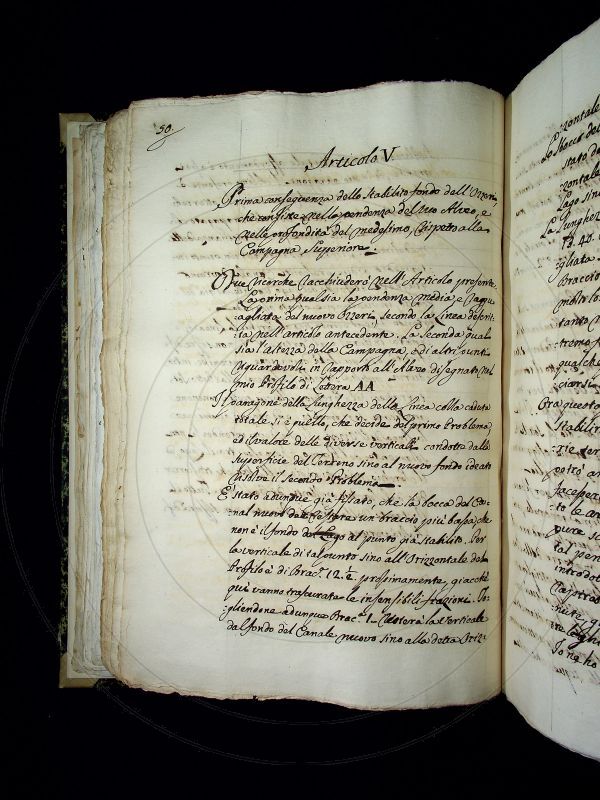 50.
Articolo V.
Prima conseguenza dello Stabilito fondo dell'Ozzeri,
che consiste nella pendenza del suo Alveo, e
nella profondità del medesimo, rispetto alla
Campagna Superiore.
Due ricerche racchiuderò nell'Articolo presente.
La prima qual sia la pendenza media, e raggua-
:agliata del nuovo Ozzeri, secondo la Linea descrit-
:ta nell'articolo antecedente. La seconda qual
sia l'altezza della Campagna, e di altri punti
riguardevoli in rapporto all'Alveo disegnato nel
mio Profilo di Lettera AA
Il paragone della Lunghezza della Linea colla caduta
totale si è quello, che decide del primo Problema,
ed il valore delle diverse verticali condotte dalla
Superficie del Terreno sino al nuovo fondo ideato
risolve il secondo Problema.
È stato adunque già fissato, che la bocca del Ca-
:nal nuovo un braccio più bassa, che
non è il fondo del Lago al punto già stabilito. Per
la verticale di tal punto sino all'Orizzontale del
Profilo è di Brac.a 12. ½ prossimamente, giacchè
qui vanno trascurate le insensibili frazioni. To-
:gliendone adunque Brac.o 1. resterà la Verticale
dal fondo del Canale nuovo sino alla detta Oriz-
:zontale
Lo Sbocco del
stato de
:zontale
Lago sino
La Lunghezz
12.40.
:gliata
Braccio
molti lo
tanto
estremo
qualche
:ciarsi
Ora questo
Stabilit
potrà